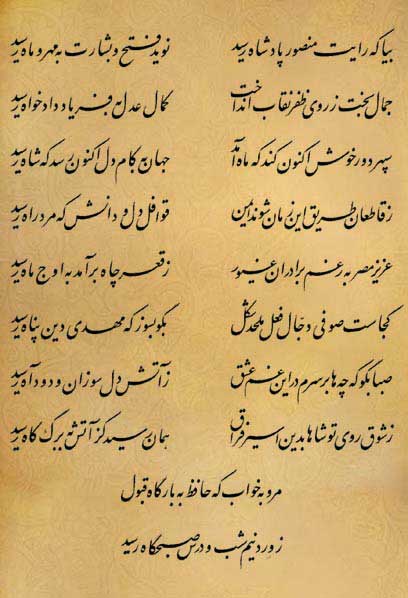 بیا که رایت منصور پادشاه رسید نوید فتح و بشارت به مهر و ماه رسید
جمال بخت ز روی ظفر نقاب انداخت کمال عدل به فریاد دادخواه رسید
سپهر دور خوش اکنون کند که ماه آمد جهان به کام دل اکنون رسد که شاه رسید
ز قاطعان طریق این زمان شوند ایمن قوافل دل و دانش که مرد راه رسید
عزیز مصر به رغم برادران غیور ز قعر چاه برآمد به اوج ماه رسید
کجاست صوفی دجال فعل ملحدشکل بگو بسوز که مهدی دین پناه رسید
صبا بگو که چه‌ها بر سرم در این غم عشق ز آتش دل سوزان و دود آه رسید
ز شوق روی تو شاها بدین اسیر فراق همان رسید کز آتش به برگ کاه رسید
مرو به خواب که حافظ به بارگاه قبول
ز ورد نیم شب و درس صبحگاه رسید